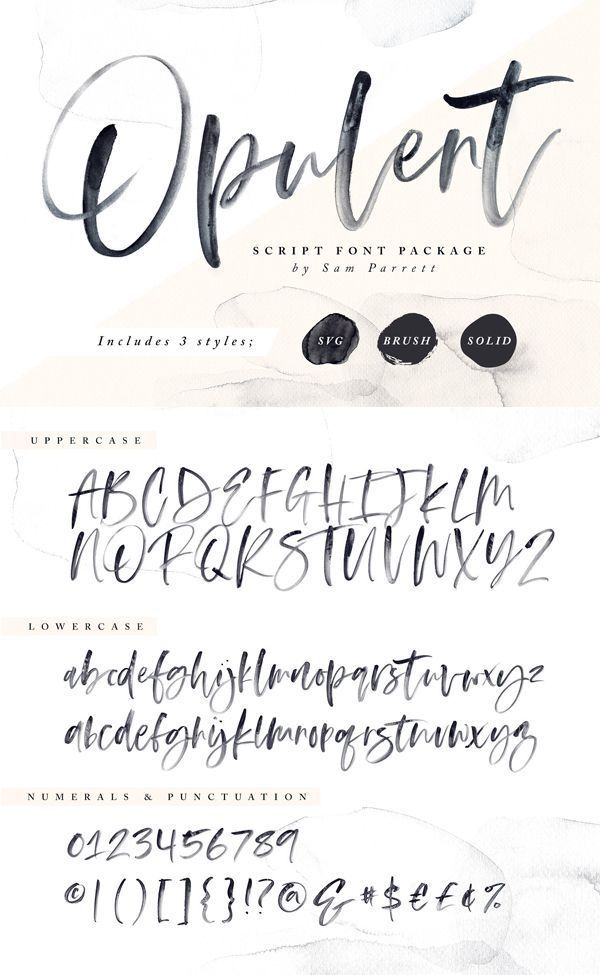 Opulent
SCRIPT FONT PACKAGE
by Sam Parrett
Includes 3 styles;
SVG
BRUSH
SOLID
UPPERCASE
ABCDEFGHIJKLM
NOPQRSTUVWXYZ
LOWERCASE
abcdefghijklmnopqrstuvwxyz
abcdefghijklmnopqrstuvwxyz
NUMERALS & PUNCTUATION
0123456789
©|()[]{}!?@&#$€£¢%